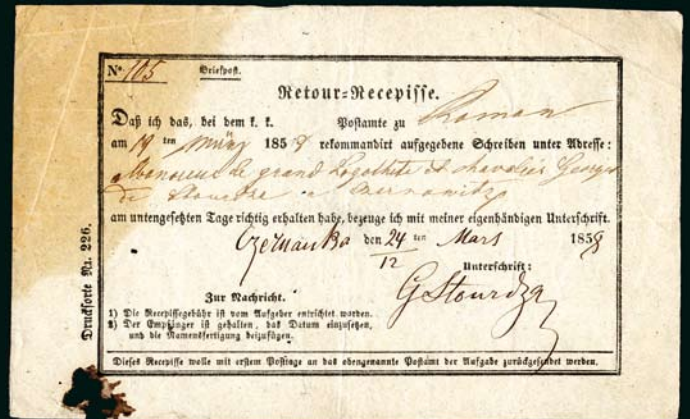 Nº 105 Briefpost.
Retour-Recepisse.
Daß ich das, bei dem k. k. Postamte zu Roman
am 19 ten März 1858 rekommandirt aufgegebene Schreiben unter Adresse:
a Monsieur le grand Logothète et chevalier George
de Stourdza a Czernowitz
am untengesetzten Tage richtig erhalten habe, bezeuge ich mit meiner eigenhändigen Unterschrift.
den 24/12 ten Mars 1858
Unterschrift:
G Stourdza
Zur Nachricht.
1) Die Recepissegebühr ist vom Aufgeber entrichtet worden.
2) Der Empfänger ist gehalten, das Datum einzusetzen,
und die Namensfertigung beizufügen.
Dieses Recepisse wolle mit erstem Postzuge an das obengenannte Postamt der Aufgabe zurückgesendet werden.
Drucksorte Nr. 226.